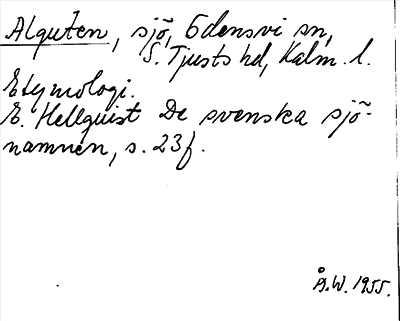 Alguten, sjö, Odensvi sn,
S. Tjusts hd, Kalm. l.
Etymologi.
E. Hellquist De svenska sjö-
namnen, s. 23 f.
Å.W. 1955.